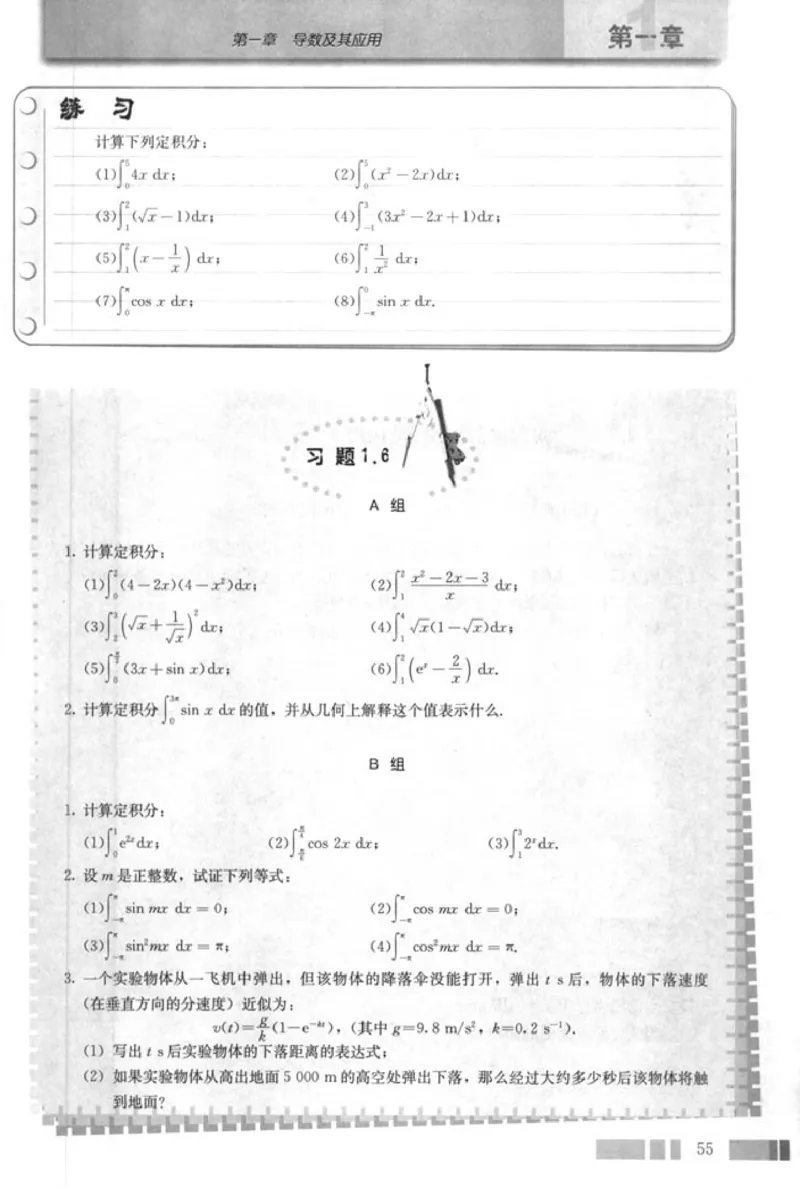 第一章 导数及其应用
第一章
练 习
计算下列定积分:
(1)∫₀⁵ 4x dx; (2)∫₀⁵ (x²-2x)dx;
(3)∫₁² (√x-1)dx; (4)∫₋₁³ (3x²-2x+1)dx;
(5)∫₁² (x-1/x) dx; (6)∫₁² 1/x² dx;
(7)∫₀^π cos x dx; (8)∫_{-π}^0 sin x dx.
习 题1.6
A 组
1. 计算定积分:
(1)∫₀² (4-2x)(4-x²)dx; (2)∫₁² (x²-2x-3)/x dx;
(3)∫₂³ (√x+1/√x)² dx; (4)∫₁⁴ √x(1-√x)dx;
(5)∫₀^{π/2} (3x+sin x)dx; (6)∫₁² (eˣ-2/x) dx.
2. 计算定积分∫₀^{3π} sin x dx 的值,并从几何上解释这个值表示什么.
B 组
1. 计算定积分:
(1)∫₀¹ e^{2x}dx; (2)∫_{π/6}^{π/4} cos 2x dx; (3)∫₁³ 2ˣdx.
2. 设 m 是正整数,试证下列等式:
(1)∫_{-π}^π sin mx dx = 0; (2)∫_{-π}^π cos mx dx = 0;
(3)∫_{-π}^π sin²mx dx = π; (4)∫_{-π}^π cos²mx dx = π.
3. 一个实验物体从一飞机中弹出,但该物体的降落伞没能打开,弹出 t s 后,物体的下落速度
(在垂直方向的分速度)近似为:
v(t)=g/k(1-e^{-kt}),(其中 g=9.8 m/s²,k=0.2 s⁻¹).
(1) 写出 t s 后实验物体的下落距离的表达式;
(2) 如果实验物体从高出地面 5 000 m 的高空处弹出下落,那么经过大约多少秒后该物体将触
到地面?
55